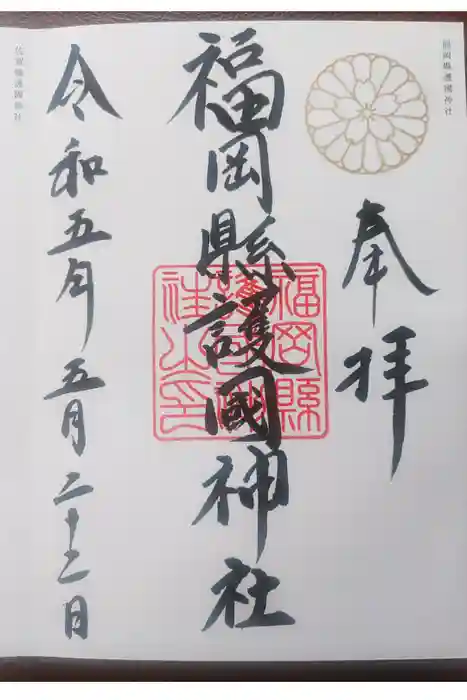 福岡縣護國神社
奉拝
福岡縣護國神社
令和五年五月二十二日